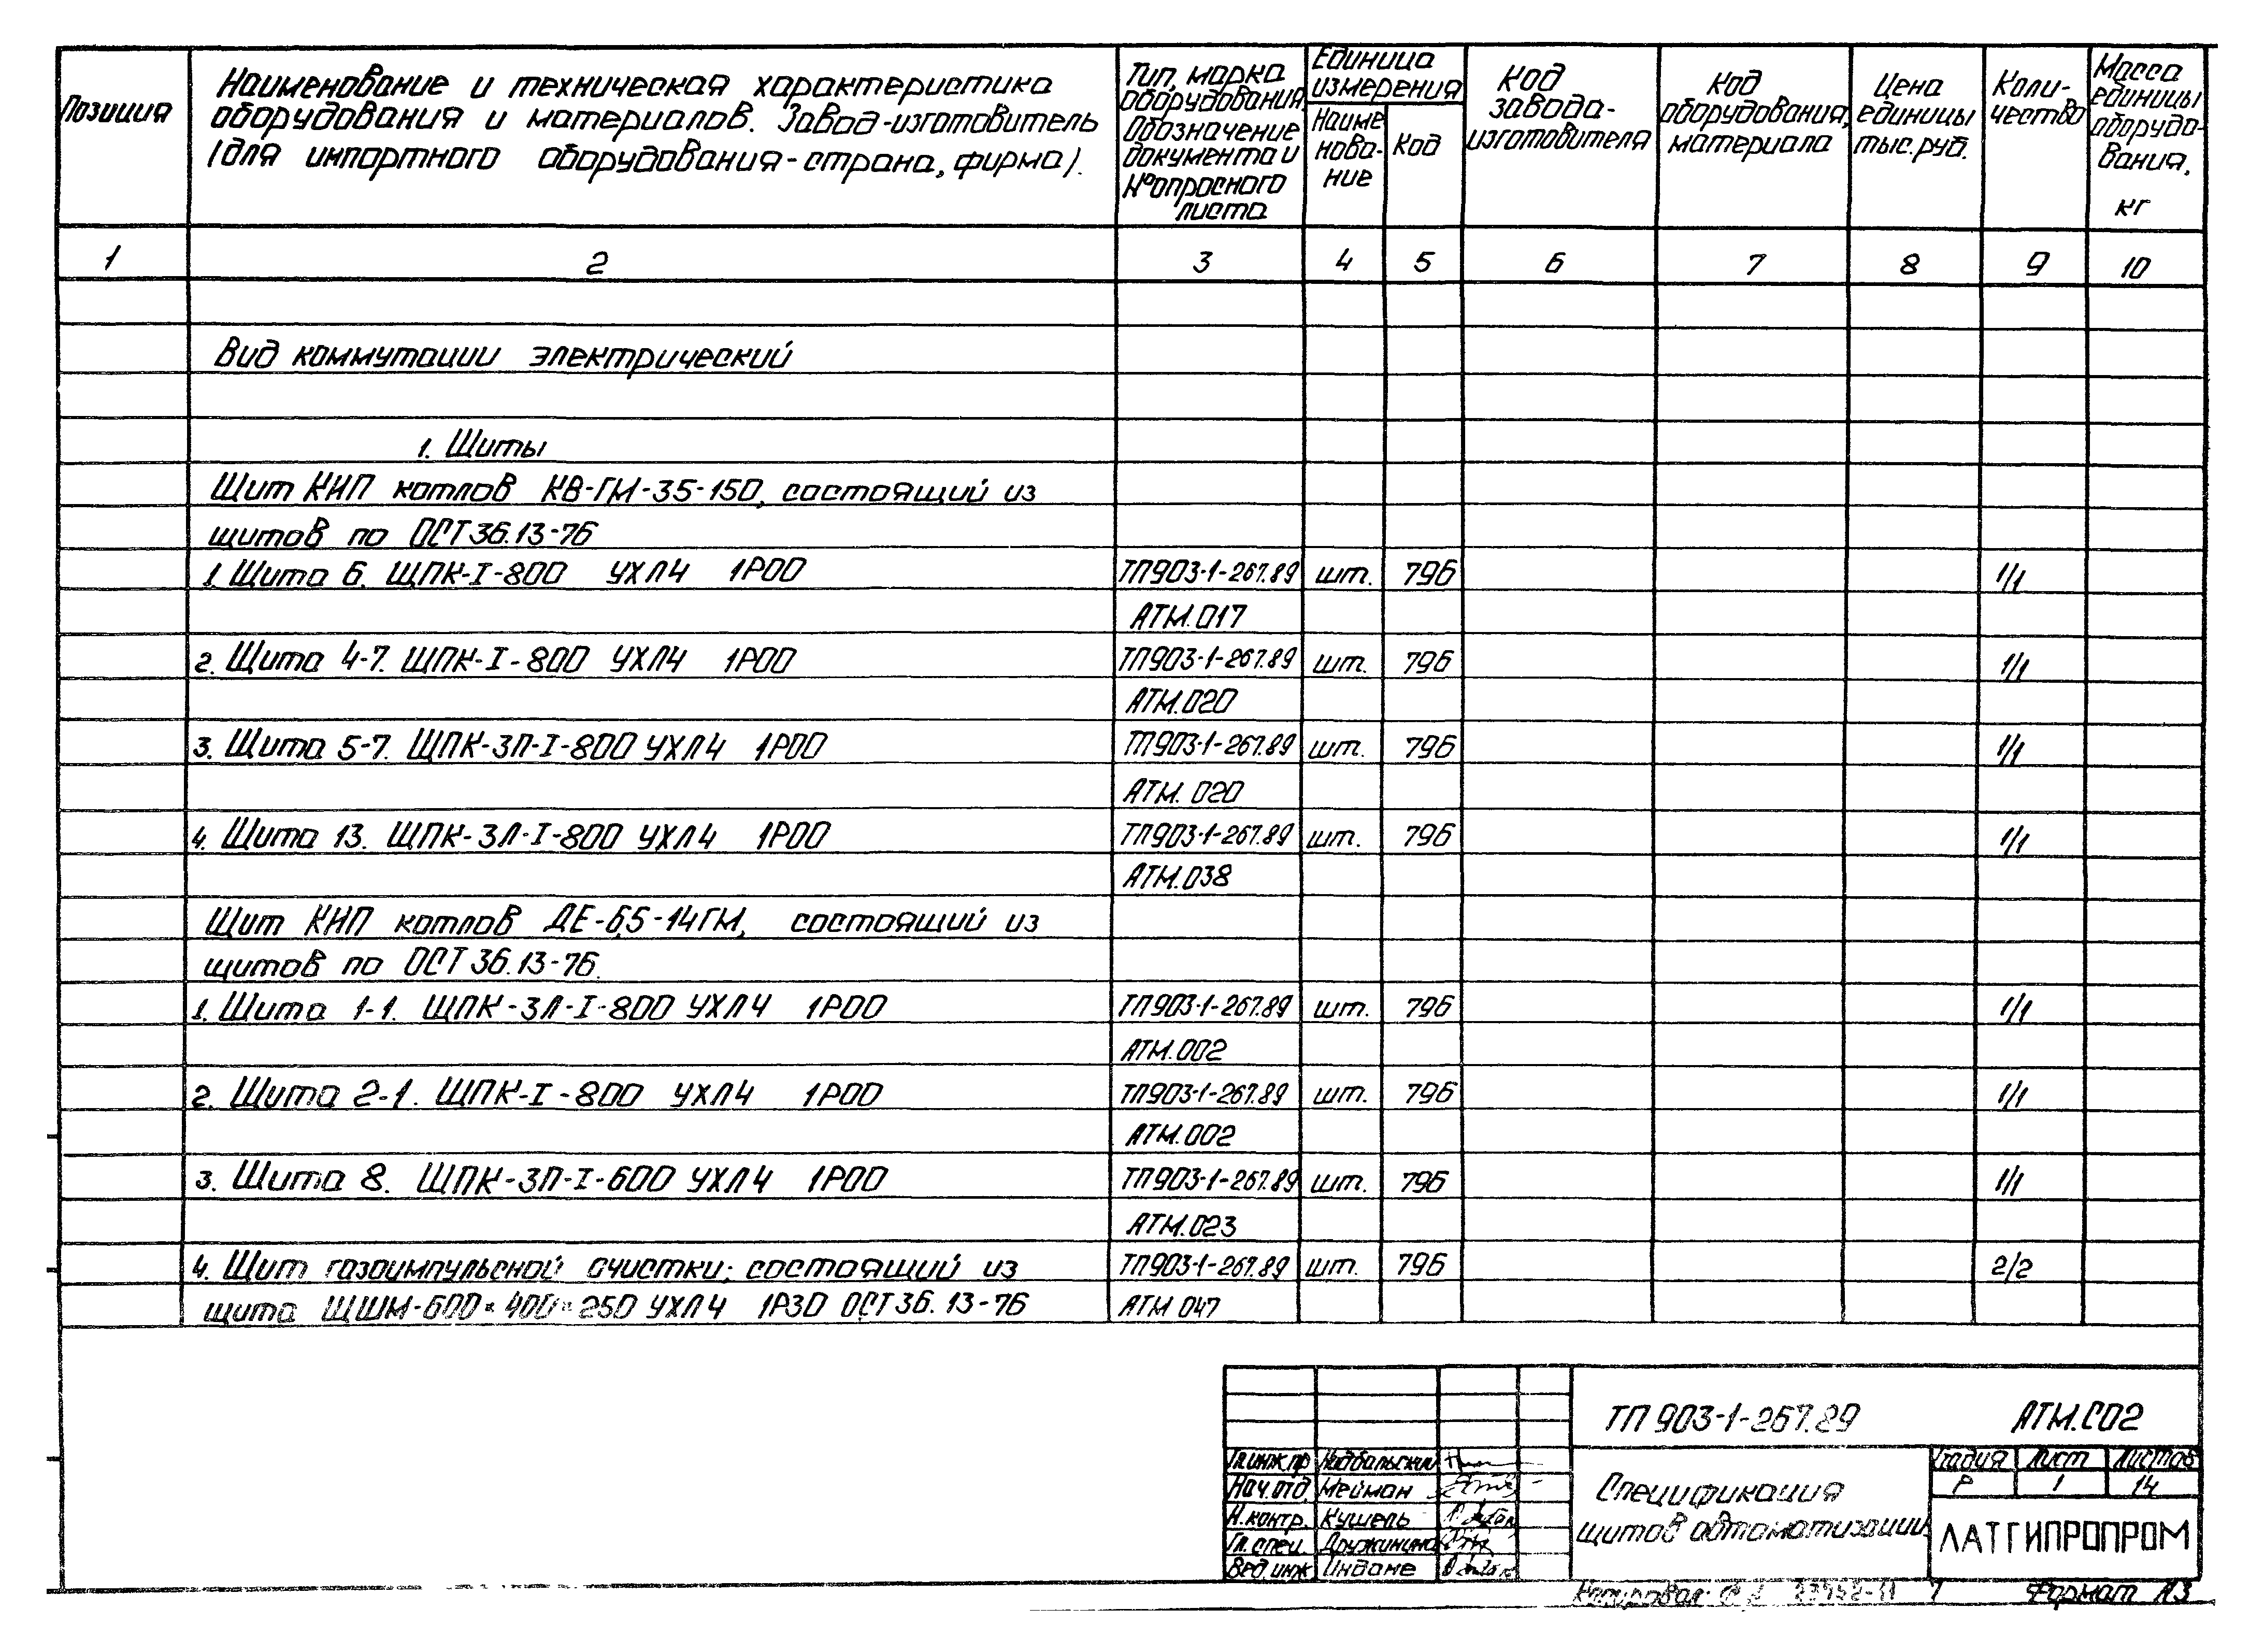 Позиция
Наименование и техническая характеристика
оборудования и материалов. Завод-изготовитель
(для импортного оборудования-страна, фирма).
Тип, марка
оборудования
Обозначение
документа и
№ опросного
листа
Единица
измерения
Наиме
нова-
ние
Код
Код
завода-
изготовителя
Код
оборудования,
материала
Цена
единицы
тыс.руб.
Коли-
чество
Масса
единицы
оборудо-
вания,
кг
1 2 3 4 5 6 7 8 9 10
Вид коммутации электрический
1. Щиты
Щит КИП котлов КВ-ГМ-35-150, состоящий из
щитов по ОСТ 36.13-76
1. Щита 6. ЩПК-I-800 УХЛ4 1Р00 ТП903-1-267.89 шт. 796 1/1
АТМ.017
2. Щита 4-7. ЩПК-I-800 УХЛ4 1Р00 ТП903-1-267.89 шт. 796 1/1
АТМ.020
3. Щита 5-7. ЩПК-ЗП-I-800 УХЛ4 1Р00 ТП903-1-267.89 шт. 796 1/1
АТМ.020
4. Щита 13. ЩПК-ЗЛ-I-800 УХЛ4 1Р00 ТП903-1-267.89 шт. 796 1/1
АТМ.038
Щит КИП котлов ДЕ-6,5-14ГМ, состоящий из
щитов по ОСТ 36.13-76.
1. Щита 1-1. ЩПК-ЗЛ-I-800 УХЛ4 1Р00 ТП903-1-267.89 шт. 796 1/1
АТМ.002
2. Щита 2-1. ЩПК-I-800 УХЛ4 1Р00 ТП903-1-267.89 шт. 796 1/1
АТМ.002
3. Щита 8. ЩПК-ЗП-I-600 УХЛ4 1Р00 ТП903-1-267.89 шт. 796 1/1
АТМ.023
4. Щит газоимпульсной очистки; состоящий из ТП903-1-267.89 шт. 796 2/2
щита ЩШМ-600×400×250 УХЛ4 1Р30 ОСТ 36.13-76 АТМ 047
ТП 903-1-267.89 АТМ.С02
Гл.инж.пр Надбальский
Нач.отд. Мейман
Н.контр. Кушель
Гл.спец. Дружинина
Вед.инж Индане
Спецификация
щитов автоматизации
Стадия Лист Листов
Р 1 14
ЛАТГИПРОПРОМ
Копировал: 7 Формат А3